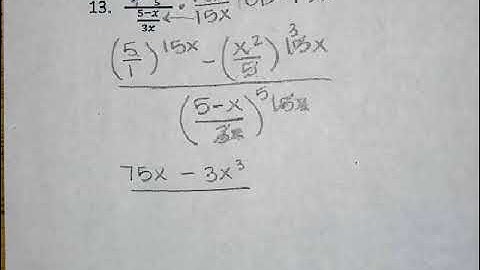 13.
5-x
3x
15x
(5/1)15x - (x²/5)15x 3
(5-x/3x)15x 5
75x - 3x³